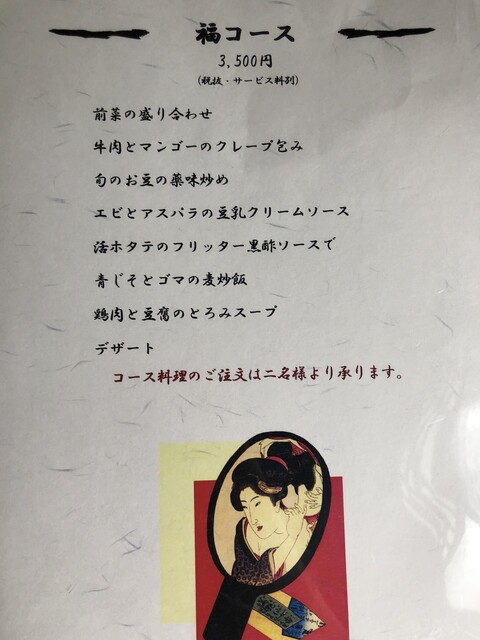 福コース
3,500円
(税抜・サービス料別)
前菜の盛り合わせ
牛肉とマンゴーのクレープ包み
旬のお豆の薬味炒め
エビとアスパラの豆乳クリームソース
活ホタテのフリッター黒酢ソースで
青じそとゴマの麦炒飯
鶏肉と豆腐のとろみスープ
デザート
コース料理のご注文は二名様より承ります。